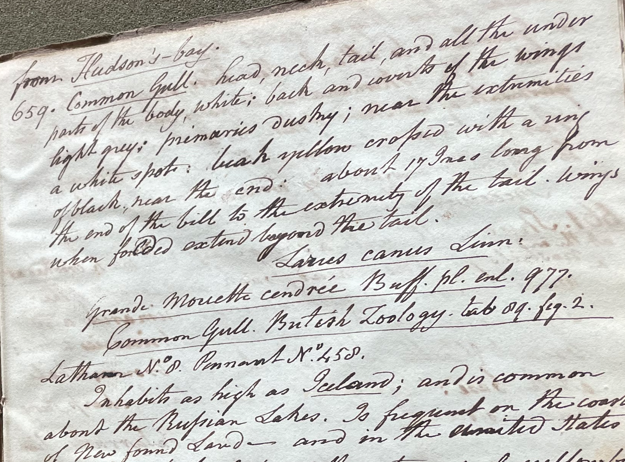 from Hudson's-bay.
659. Common Gull. head, neck, tail, and all the under
parts of the body, white; back and coverts of the wings
light grey; primaries dusky; near the extremities
a white spot: beak yellow crossed with a ring
of black, near the end: about 17 Ines long from
the end of the bill to the extremity of the tail. Wings
when folded extend beyond the tail.
Larus canus Linn:
Grande Mouette cendrée Buff. pl. enl. 977.
Common Gull. British Zoology. tab 89. fig. 2.
Latham No. 8. Pennant No. 458.
Inhabits as high as Iceland; and is common
about the Russian Lakes. Is frequent on the coast
of New found Land - and in the united States